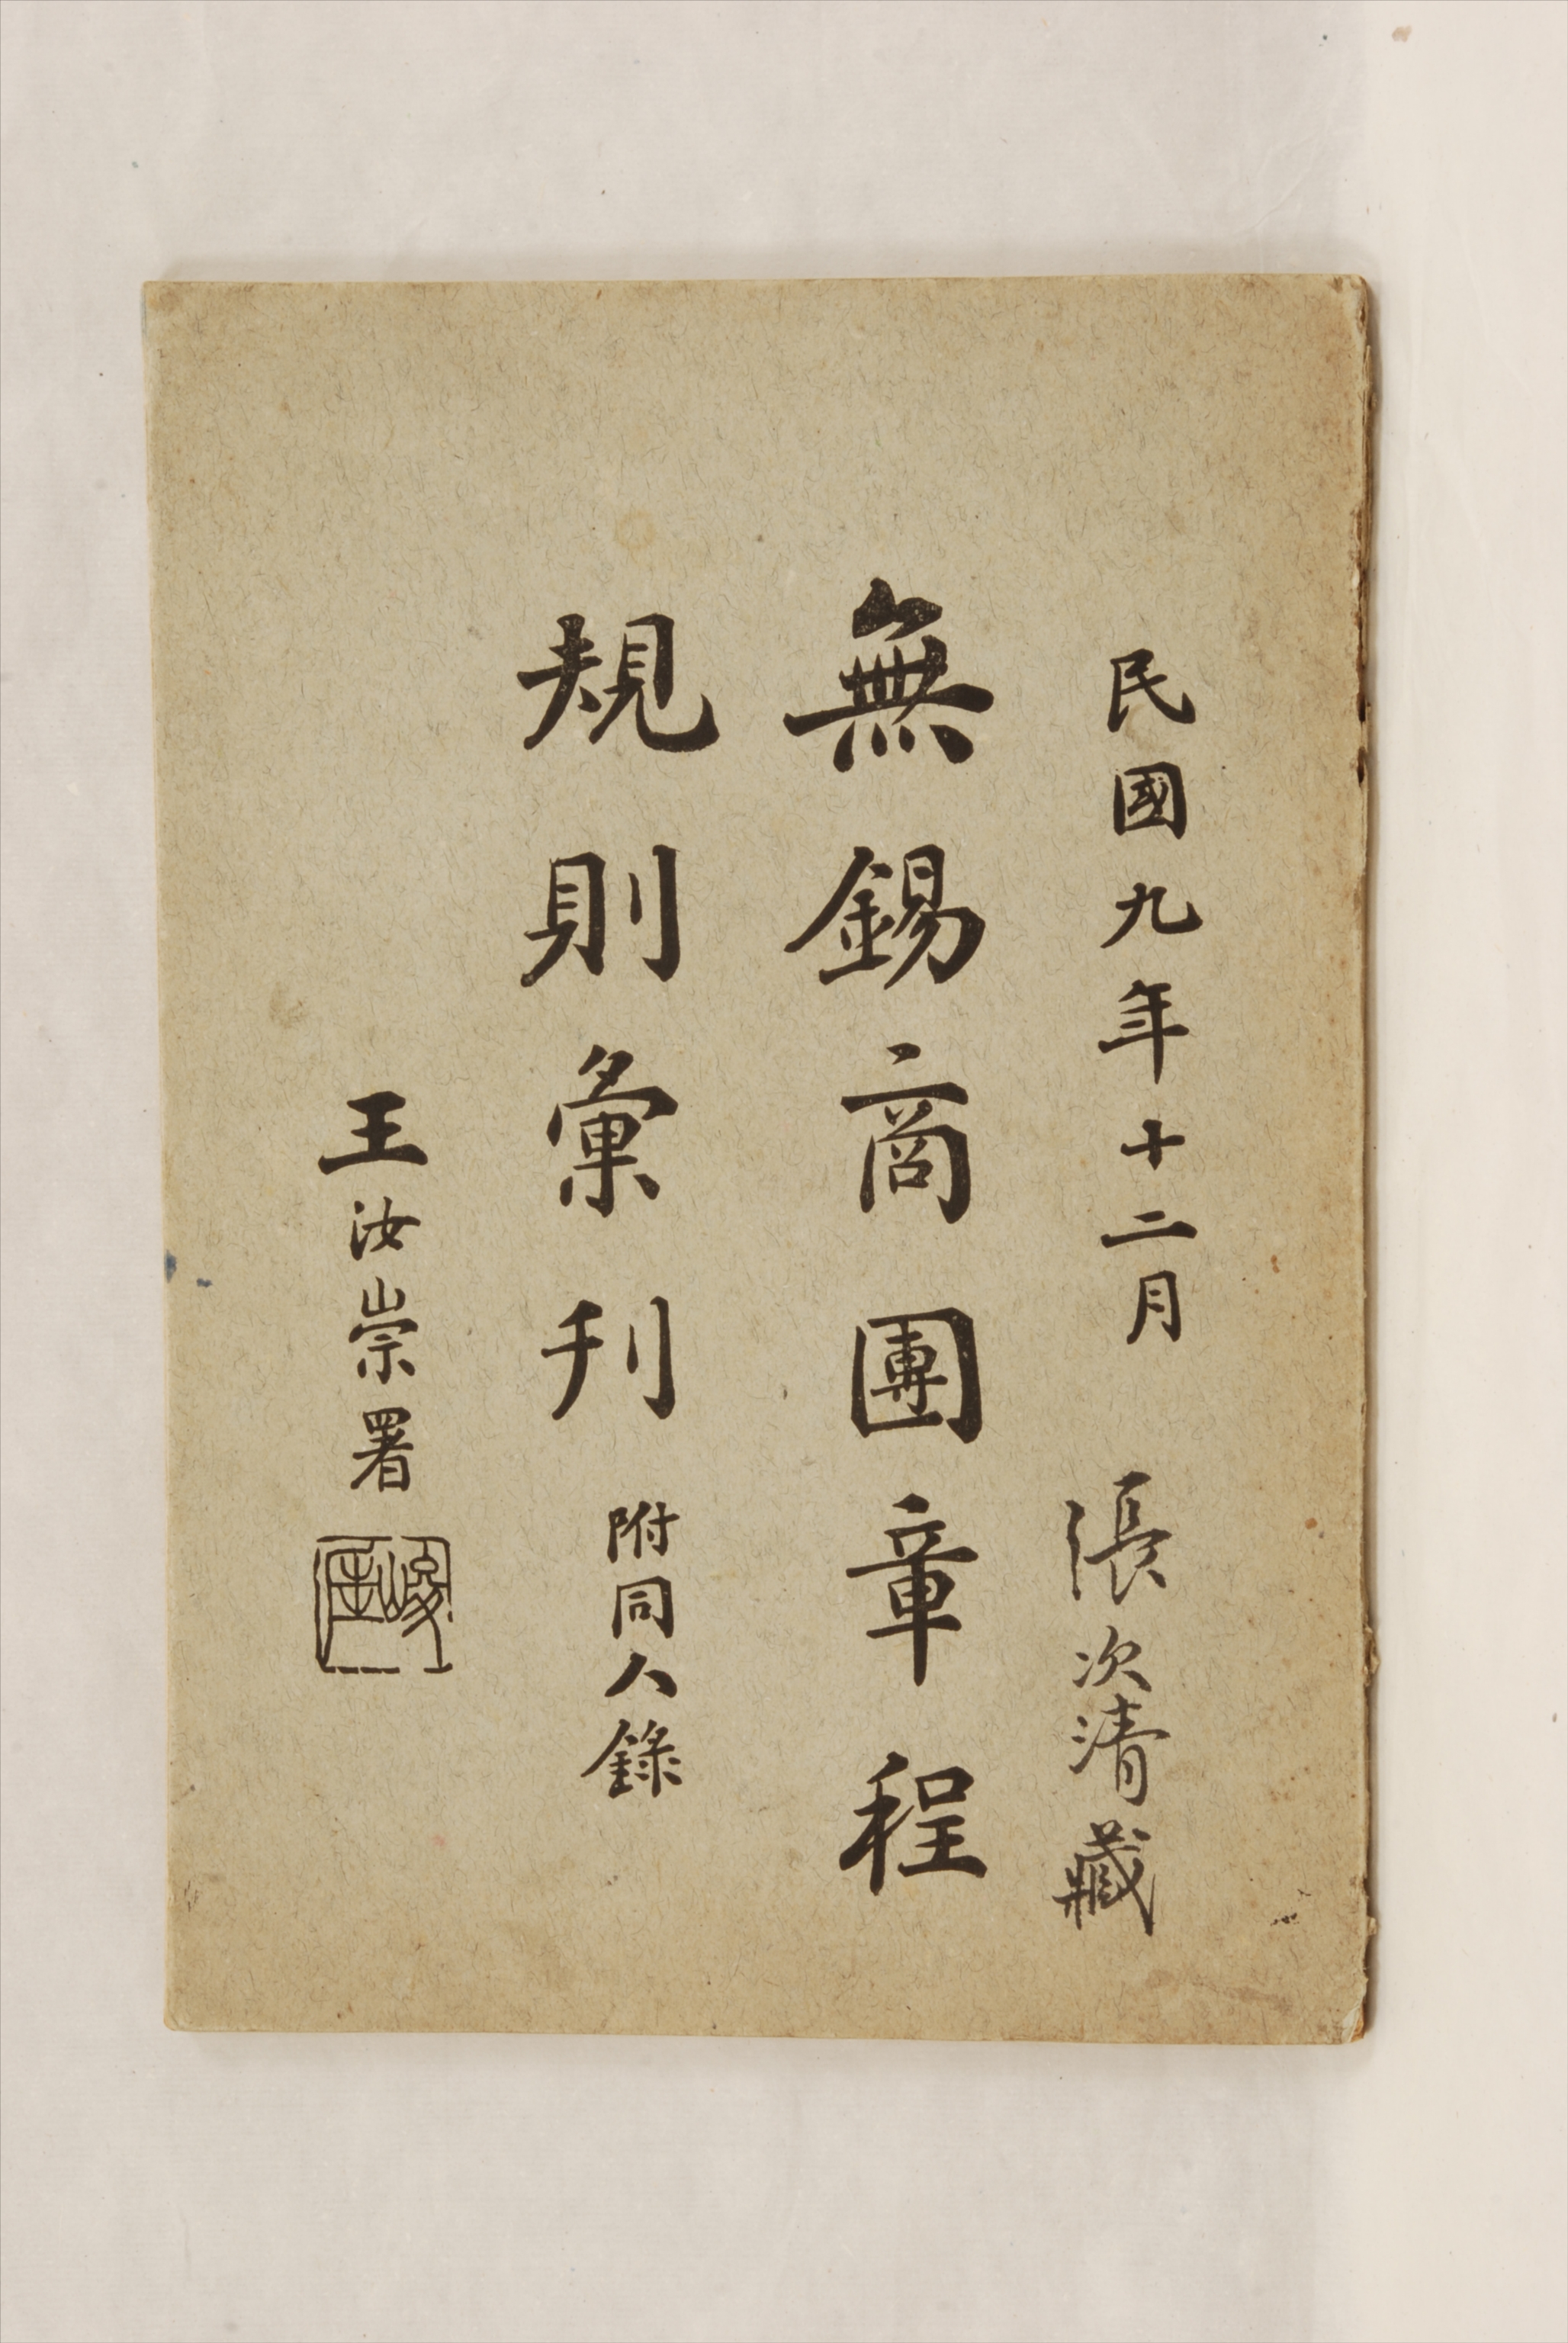 民國九年十二月 張次清藏
無錫商團章程
規則彙刊 附同人錄
王汝崇署